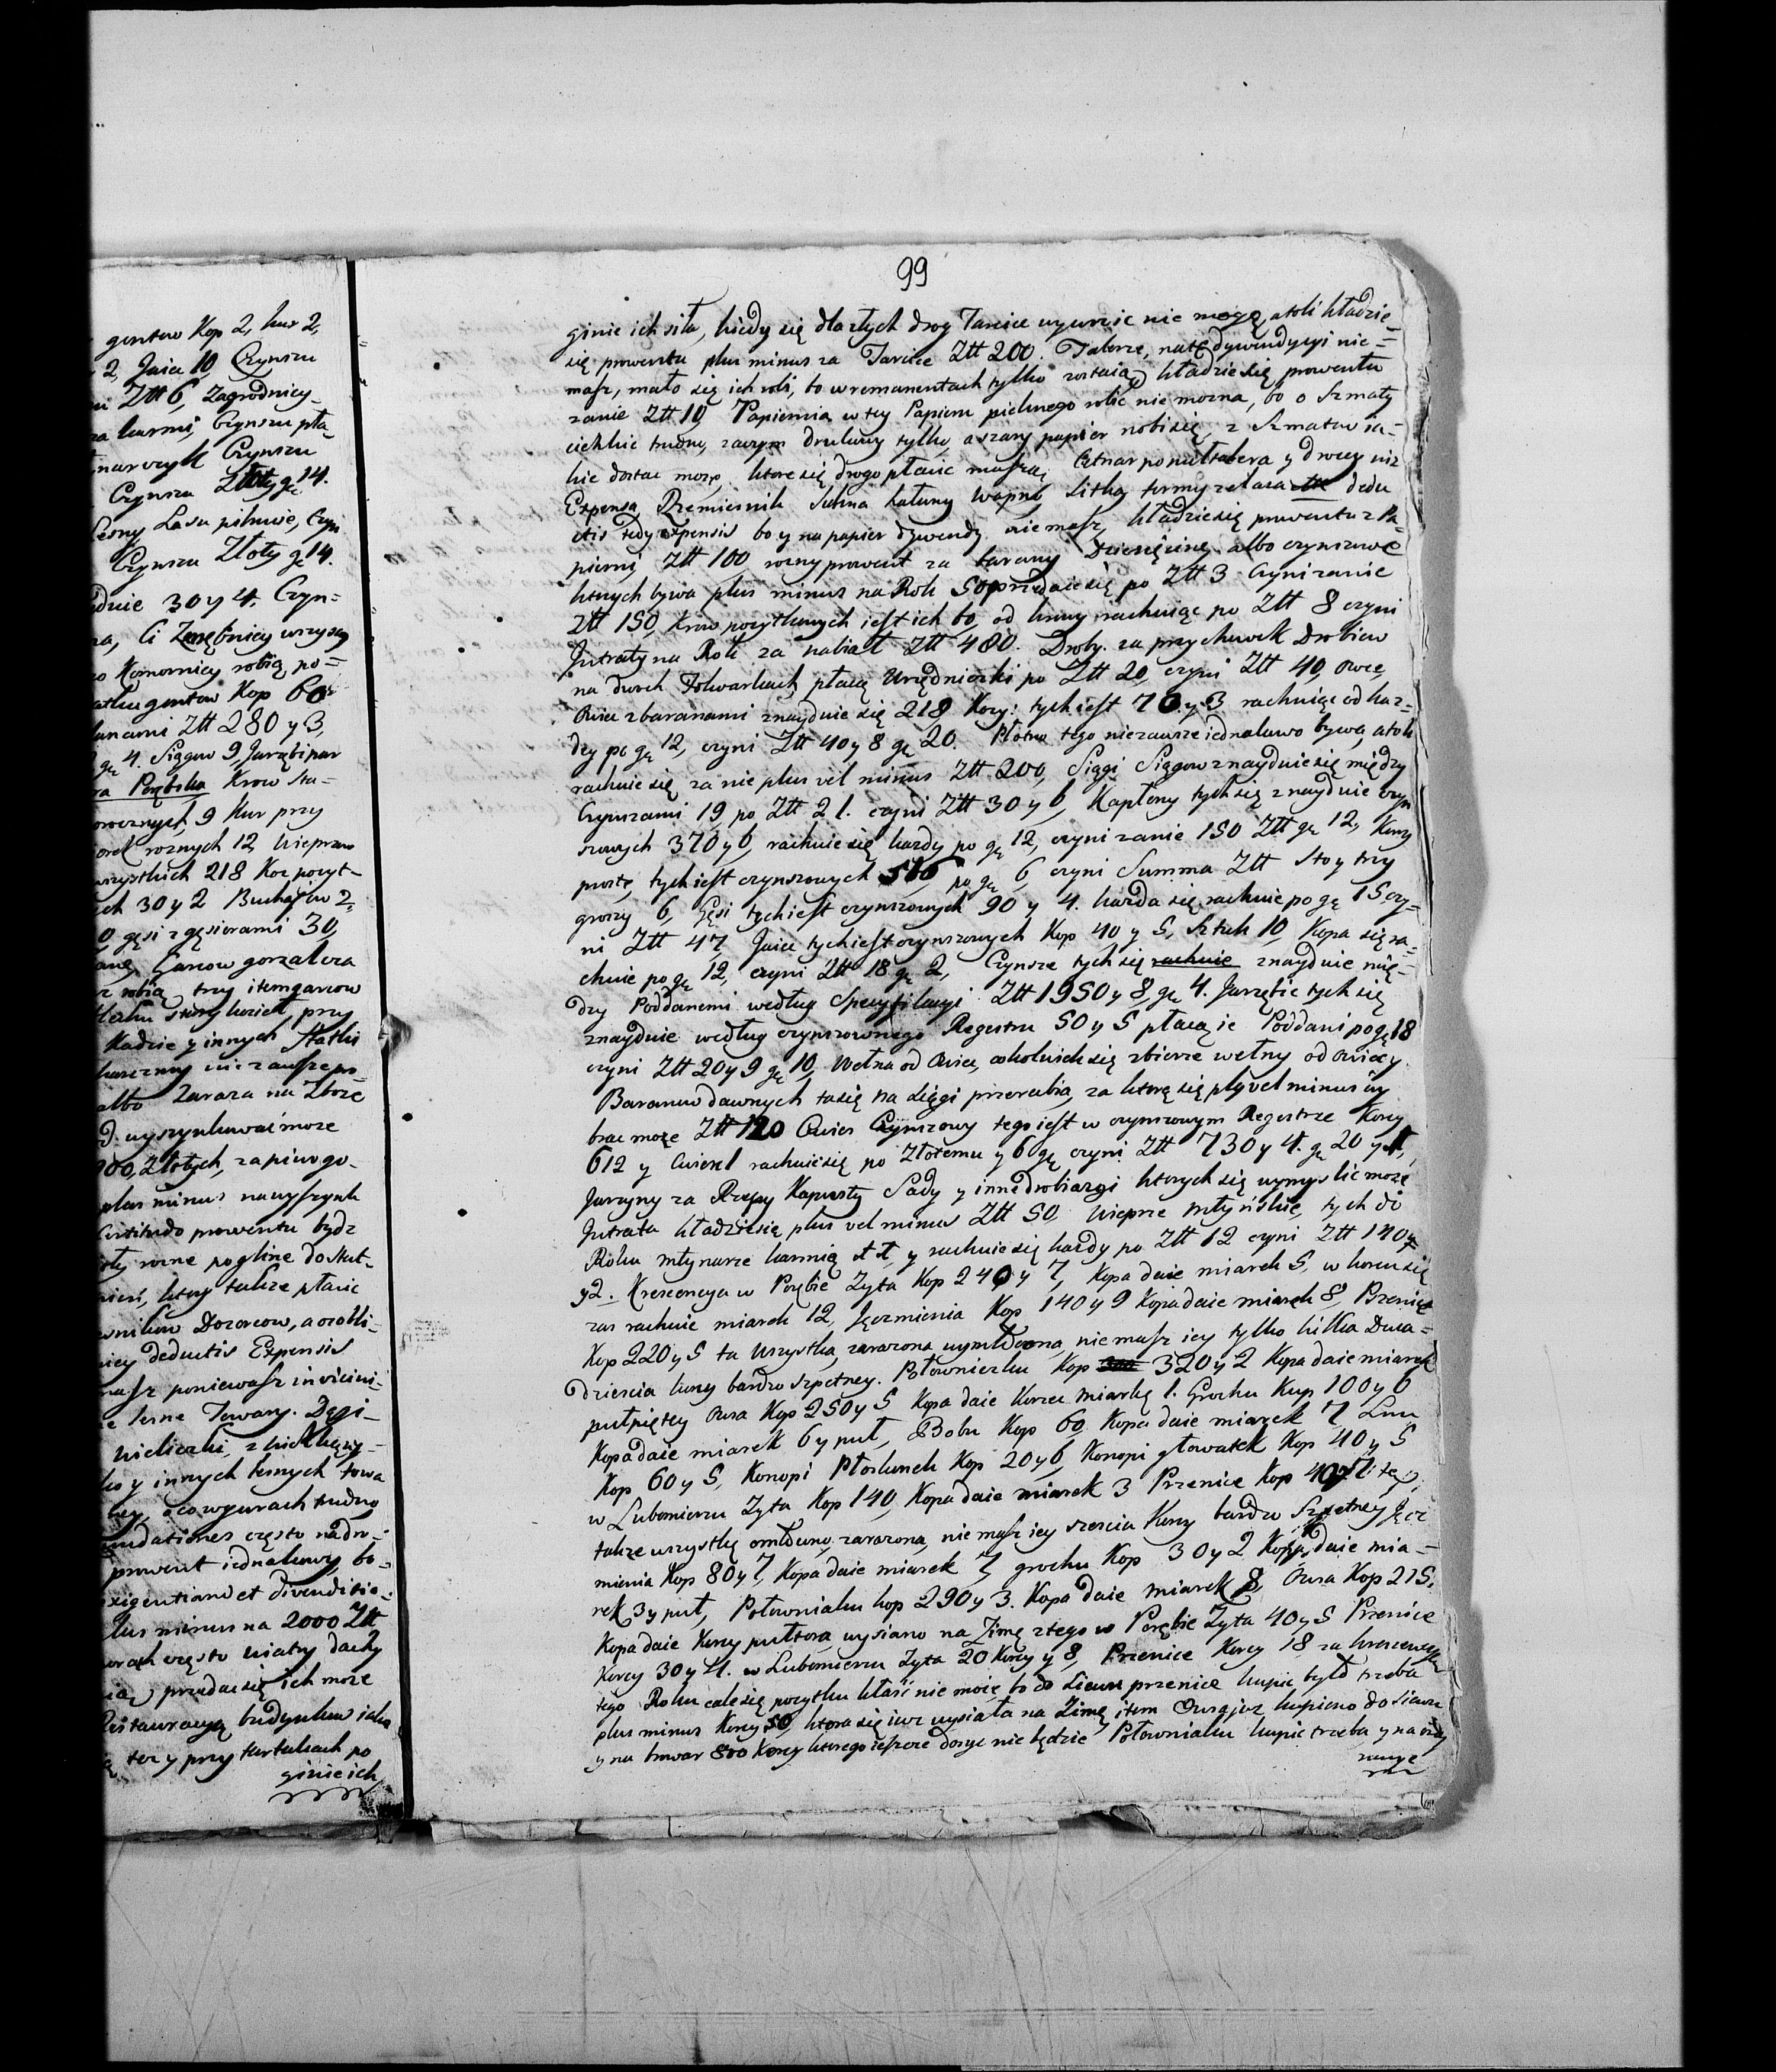 gontow Kop 2, kur 2,
2, Jaiec 10, Czynszu
Ztt 6, Zagrodnicy
karmi, Czynszu pła-
Czynszu
Czynszu Złoty gr 14.
Lasu pilnuie, czyn
Czynszu Złoty gr 14.
30 y 4. Czyn=
Ci Zarębnicy wszyscy
Komornicy robią po=
gontow Kop 60
Ztt 280 y 3,
gr 4. Siągow 9, Jarząbi par
Porębska Krow sta-
9 Kur przy
roznych 12, Wieprzow
wszystkich 218 Koz pozyt-
30 y 2 Buhaiow 2=
gęsi z gęsiorami 30,
Garcow gorzalcza
robią trzy item garcow
przy
Kadzie y innych statki
nie zawsze po-
albo Zaraza na Zboze
wyszynkować może
Złotych, za piwo go-
plus minus na wyszynk
prowentu bydz
rozne po glinę do Hut-
ktory takze płacic
Dozorcow, a osobli-
deductis Expensis
poniewasz in vicini-
lesne Towary. Dęgi-
Wieliczki,
y innych lesnych towa
co w gurach trudno
często na dro-
prowent iednakowy, bo-
et divenditio-
plus minus na 2000 Ztt
często wiatry dachy
przedac się ich może
budynkow
tez y przy tartakach po
ginie ich
99
ginie ich siła, kiedy się dla złych drog Tarcice wywozic nie mogą, atoli kładzie=
się prowentu plus minus za Tarcice Ztt 200. Talerze, na te dywendycyi nie=
masz, mało się ich robi, to w remanentach tylko zostaią, kładzie się prowentu
za nie Ztt 10, Papiernia w tey Papieru pieknego robic nie mozna, bo o Szmaty
cienkie trudno, zaczym drukowy tylko, a szary papier robi się, z Szmatow ia-
kie dostac mozę, ktore się drogo płacic muszą, Cetnar po pułtalera y drozey niz
Expensa, Rzemiesnik Sukna hałuny Wapno Sitka formy zelaza dedu
ctis tedy expensis bo y na papier dywendy nie masz, kładzie się prowentu z Pa=
pierni, Ztt 100 rozny prowent za barany Dziesięcine albo czynszowe
ktorych bywa plus minus na Rok 50 przedaie się po Ztt 3 Czyni za nie
Ztt 150, Krow pozytkowych iest ich 60, od krowy rachuiąc po Ztt 8 czyni
Jntraty na Rok za nabiał Ztt 480. Droby. za przychowek Drobiow
na dwoch Folwarkach, płacą Urzędniczki po Ztt 20, czyni Ztt 40, owce,
Owiec z baranami znayduie się 218 Kozy: tych iest 70. y 3 rachuiąc od kaz=
dzy po gr 12, czyni Ztt 40 y 8 gr 20. Płotna tego niezawsze iednakowo bywa, atoli
rachuie się za nie plus vel minus Ztt 200, Siągi Siągow znayduie się między
Czynszami 19, po Ztt 2 1. czyni Ztt 30 y 6, Kapłony tych się znayduie czyn
szowych 370 y 6, rachuie się kazdy po gr 12, czyni za nie 150 Ztt gr 12, Kury
proste, tych iest czynszowych 516 po gr 6, czyni Summa Ztt Sto y trzy
groszy 6, Gęsi tych iest czynszowych 90 y 4. kazda się rachuie po gr 15, czy=
ni Ztt 47, Jaiec tych iest czynszowych Kop 40 y 5, Sztuk 10, Kopa się ra=
chuie po gr 12, czyni Ztt 18 gr 2, Czynsze tych się rachuie znayduie mię=
dzy Poddanemi według Specyfikacyi Ztt 1950 y 8, gr 4. Jarzębie tych się
znayduie według czynszownego Regestru 50 y 5 płacą ie Poddani po gr 18
czyni Ztt 20 y 9 gr 10, Wełna od Owiec, cokolwiek się zbierze wełny od Owiec y
Baranow dawnych ta się na Ligi przerabia, za ktorą się plus vel minus
brac może Ztt 120 Owies Czynszowy tego iest w czynszowym Regestrze Korcy
612 y cwierc 1 rachuie się po Złotemu y 6 gr czyni Ztt 730 y 4. gr 20 y 1,
Jarzyny za Rzepy Kapusty Sady y inne drobiazgi ktorych się wymyslic może
Jntrata kładzie się plus vel minus Ztt 50 Wieprze Młyńskie, tych do
Roku młynarze karmią 11, y rachuie się kazdy po Ztt 12 czyni Ztt 140 y
y 2. Krescencya w Porębie Zyta Kop 240 y 7, Kopa daie miarek 5, w korcu się
zas rachuie miarek 12, Jęczmienia Kop 140 y 9 Kopa daie miarek 8, Przenice
Kop 220 y 5 ta Wszystka, zarazona, wymłocona, nie masz iey tylko kilka Dwa=
dziescia korcy bardzo szpetney. Połowniczku Kop 320 y 2 Kopa daie miarek
pułpięty Owsa Kop 250 y 5 Kopa daie Korzec miarkę 1. Grochu Kop 100 y 6
Kopa daie miarek 6 y puł, Bobu Kop 60, Kopa daie miarek 7, Lnu
Kop 60 y 5, Konopi Płoskunek Kop 20 y 6, Konopi głowatek Kop 40 y 5
w Lubomierzu Zyta Kop 140, Kopa daie miarek 3 Przenice Kop
takze wszystkę omłocono, zarazona, nie masz iey szescia Korcy bardzo Szpetney Jęcz
mienia Kop 80 y 7, Kopa daie miarek 7, grochu Kop 30 y 2 Kopa daie mia=
rek 3 y puł, Połowniaku kop 290 y 3. Kopa daie miarek 8, Owsa Kop 215,
Kopa daie Korcy pułtora, wysiano na Zimę z tego w Porębie Zyta 40 y 5 Przenice
Korcy 30 y 4. w Lubomierzu Zyta 20 Korcy y 8, Przenice Korcy 18, za krescencyą
tego Roku cale się pozytku kłaść nie moze, bo do Siewu przenice kupic było trzeba
plus minus Korcy 50, ktora się iuz wysiała na Zimę, item Owsa juz kupiono do siewu
y na browar 800 Korcy ktorego ieszcze dosyc nie będzie Połowniaku kupic trzeba y na